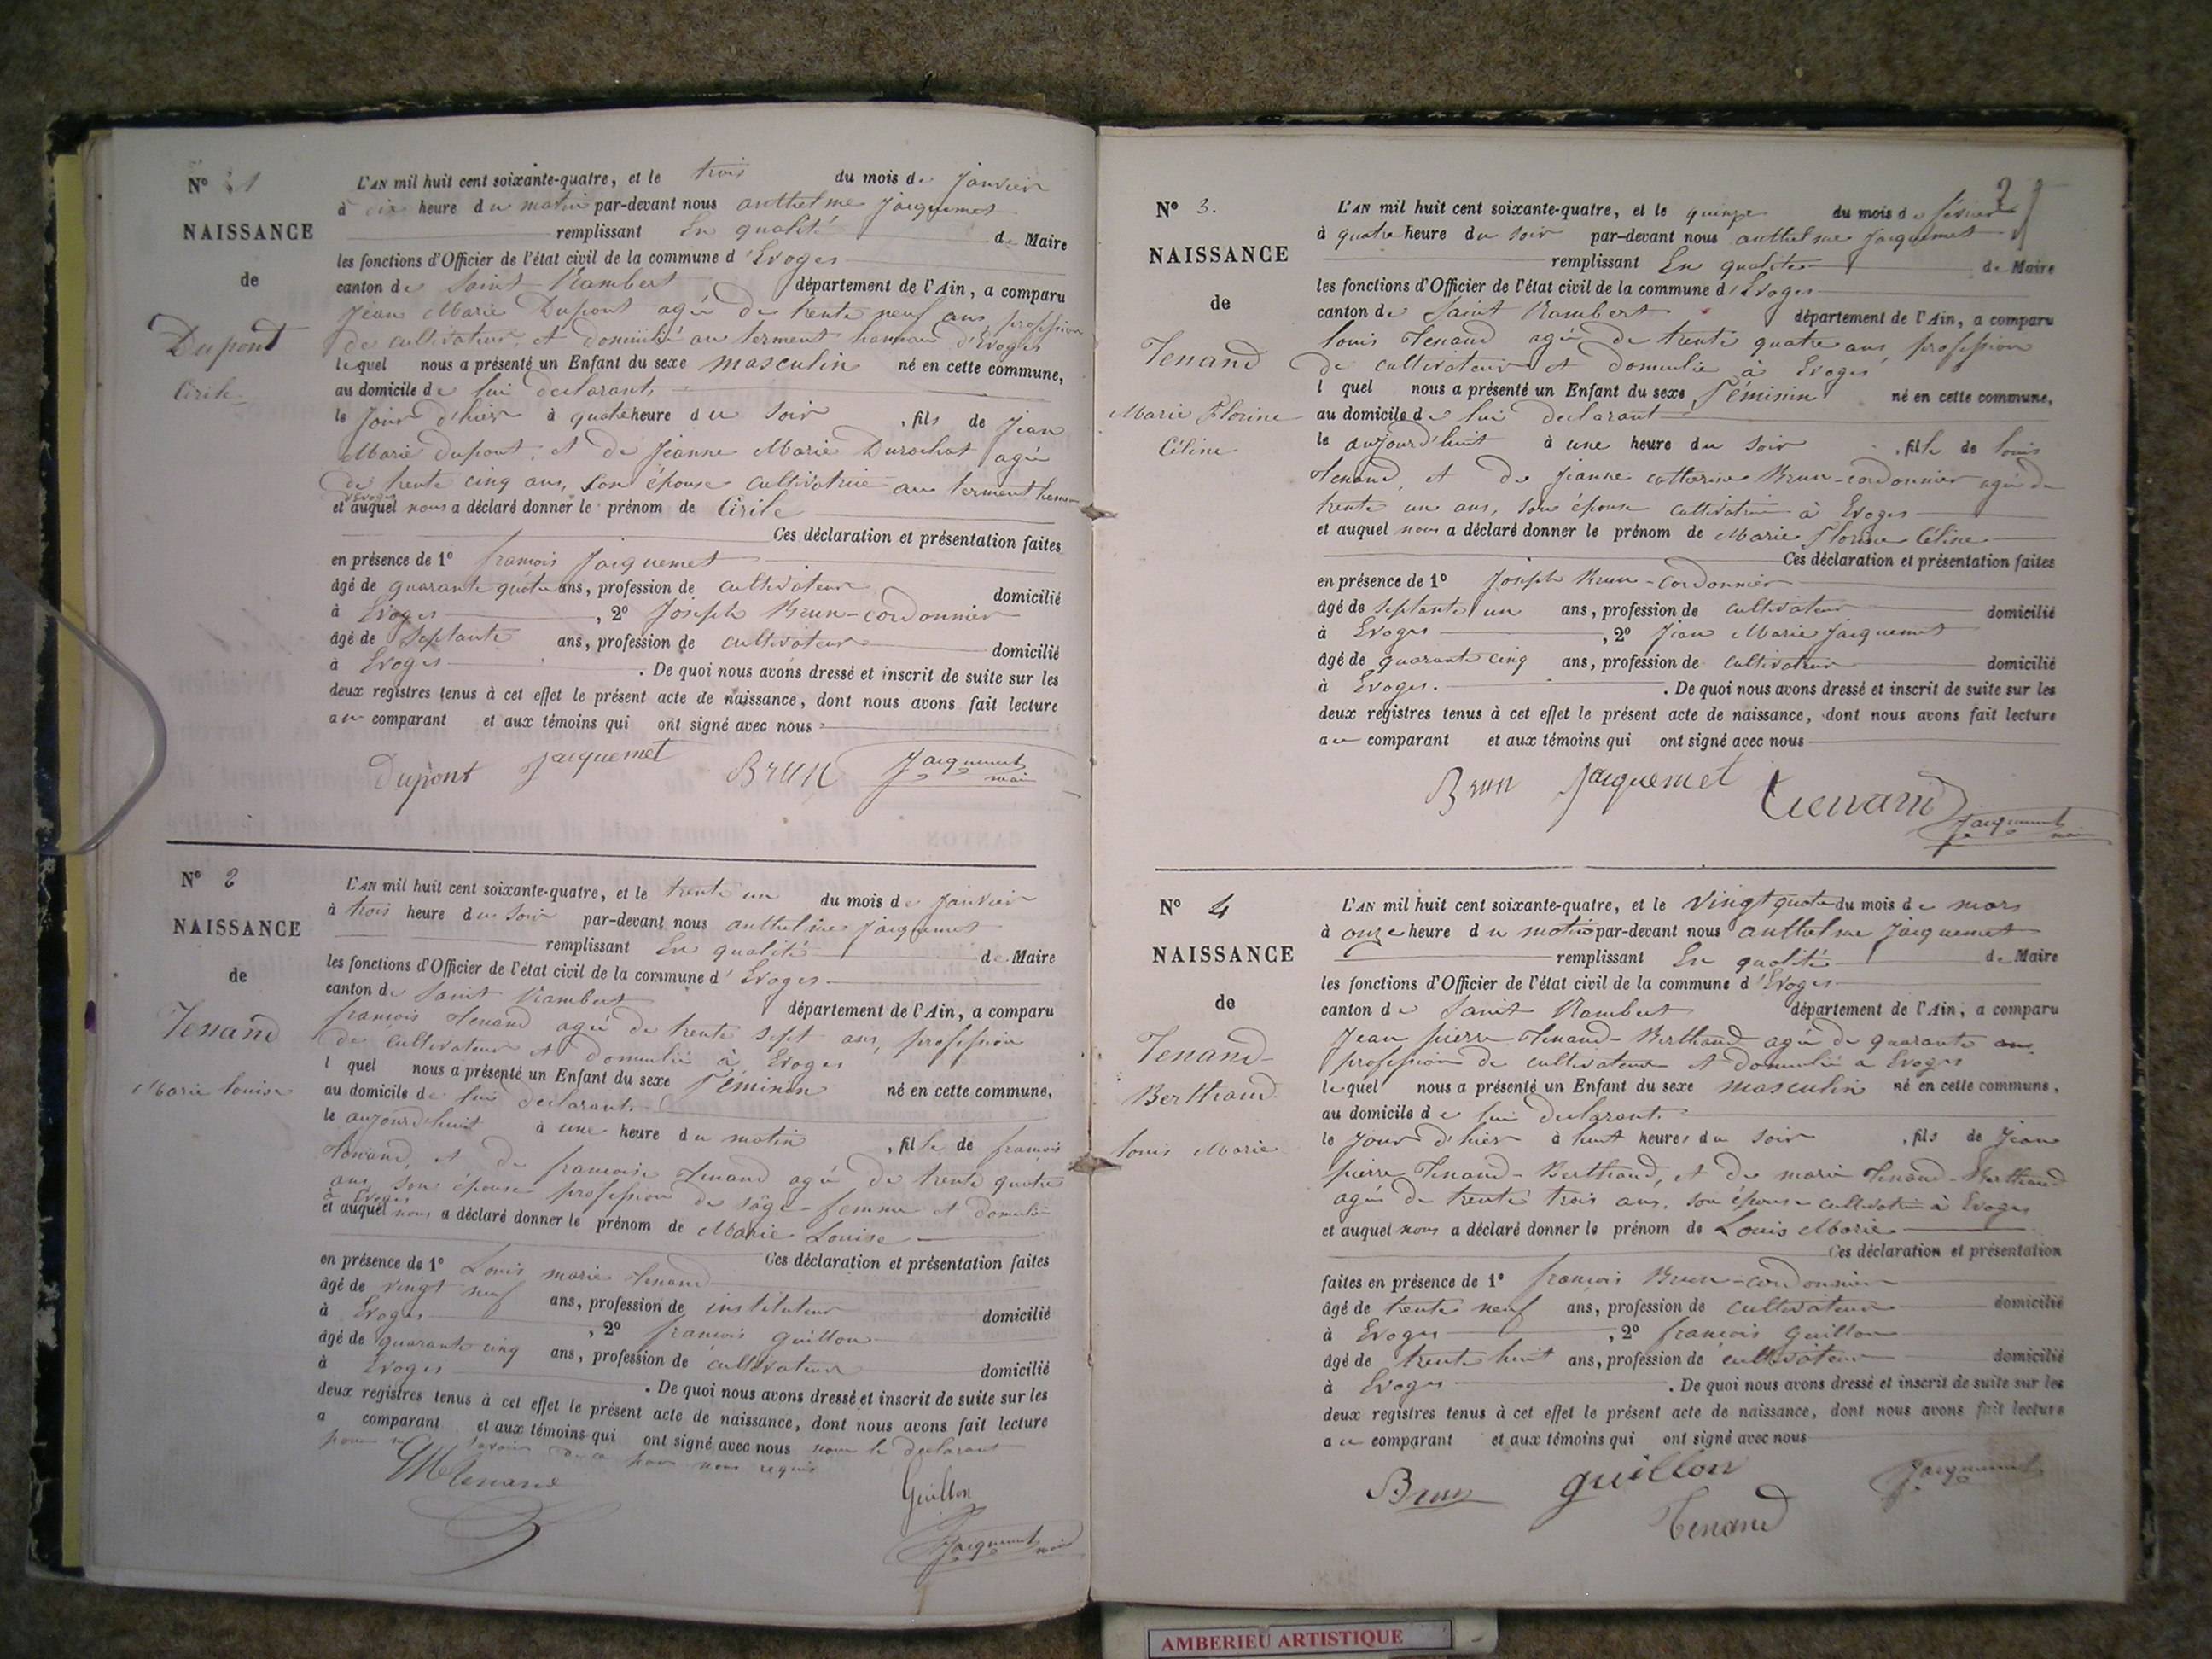 N° 1
NAISSANCE
de
Dupont
Cirile
L'AN mil huit cent soixante-quatre, et le trois du mois de Janvier
à dix heure du matin par-devant nous anthelme Jacquemet
remplissant En qualité de Maire
les fonctions d'Officier de l'état civil de la commune d'Evoges
canton de Saint Rambert département de l'Ain, a comparu
Jean Marie Dupont agé de trente neuf ans, profession
de cultivateur, et domicilié au terment hameau d'Evoges
lequel nous a présenté un Enfant du sexe masculin né en cette commune,
au domicile de lui declarant
le Jour d'hier à quatre heure du soir, fils de Jean
Marie Dupont, et de Jeanne Marie Durochat agée
de trente cinq ans, son épouse cultivatrice au terment hameau
d'Evoges
et auquel nous a déclaré donner le prénom de Cirile
Ces déclaration et présentation faites
en présence de 1° francois Jacquemet
âgé de quarante quatre ans, profession de cultivateur domicilié
à Evoges, 2° Joseph Brun-cordonnier
âgé de septante ans, profession de cultivateur domicilié
à Evoges. De quoi nous avons dressé et inscrit de suite sur les
deux registres tenus à cet effet le présent acte de naissance, dont nous avons fait lecture
au comparant et aux témoins qui ont signé avec nous
Dupont Jacquemet Brun Jacquemet maire
N° 2
NAISSANCE
de
Tenand
Marie Louise
L'AN mil huit cent soixante-quatre, et le trente un du mois de Janvier
à trois heure du soir par-devant nous anthelme Jacquemet
remplissant En qualité de Maire
les fonctions d'Officier de l'état civil de la commune d'Evoges
canton de Saint Rambert département de l'Ain, a comparu
francois Tenand agé de trente sept ans, profession
de cultivateur et domicilié à Evoges
l quel nous a présenté un Enfant du sexe Féminin né en cette commune,
au domicile de lui declarant
le aujourd'huit à une heure du matin, fille de francois
Tenand, et de francoise Tenand agée de trente quatre
ans, son épouse profession de sage-femme et domiciliée
à Evoges
et auquel nous a déclaré donner le prénom de Marie Louise
Ces déclaration et présentation faites
en présence de 1° Louis marie Tenand
âgé de vingt neuf ans, profession de instituteur domicilié
à Evoges, 2° francois Guillon
âgé de quarante cinq ans, profession de cultivateur domicilié
à Evoges. De quoi nous avons dressé et inscrit de suite sur les
deux registres tenus à cet effet le présent acte de naissance, dont nous avons fait lecture
a comparant et aux témoins qui ont signé avec nous non le declarant
pour ne savoir de ce par nous requis
Tenand Guillon
Jacquemet maire
2
N° 3.
NAISSANCE
de
Tenand
Marie Florine
Céline
L'AN mil huit cent soixante-quatre, et le quinze du mois de février
à quatre heure du soir par-devant nous anthelme Jacquemet
remplissant En qualité de Maire
les fonctions d'Officier de l'état civil de la commune d'Evoges
canton de Saint Rambert département de l'Ain, a comparu
louis Tenand agé de trente quatre ans, profession
de cultivateur et domicilié à Evoges
l quel nous a présenté un Enfant du sexe Féminin né en cette commune,
au domicile de lui declarant
le aujourd'huit à une heure du soir, fille de louis
Tenand, et de Jeanne catherine Brun-cordonnier agée de
trente un ans, son épouse cultivatrice à Evoges
et auquel nous a déclaré donner le prénom de Marie Florine Céline
Ces déclaration et présentation faites
en présence de 1° Joseph Brun-cordonnier
âgé de septante un ans, profession de cultivateur domicilié
à Evoges, 2° Jean Marie Jacquemet
âgé de quarante cinq ans, profession de cultivateur domicilié
à Evoges. De quoi nous avons dressé et inscrit de suite sur les
deux registres tenus à cet effet le présent acte de naissance, dont nous avons fait lecture
au comparant et aux témoins qui ont signé avec nous
Brun Jacquemet Tenand
Jacquemet
N° 4
NAISSANCE
de
Tenand-
Berthand
louis Marie
L'AN mil huit cent soixante-quatre, et le vingt quatre du mois de mars
à onze heure du matin par-devant nous anthelme Jacquemet
remplissant En qualité de Maire
les fonctions d'Officier de l'état civil de la commune d'Evoges
canton de Saint Rambert département de l'Ain, a comparu
Jean pierre Tenand-Berthand agé de quarante ans
profession de cultivateur et domicilié à Evoges
lequel nous a présenté un Enfant du sexe masculin né en cette commune,
au domicile de lui declarant
le Jour d'hier à huit heures du soir, fils de Jean
pierre Tenand-Berthand, et de marie Tenand-Berthand
agée de trente trois ans, son épouse cultivatrice à Evoges
et auquel nous a déclaré donner le prénom de Louis Marie
Ces déclaration et présentation
faites en présence de 1° francois Brun-cordonnier
âgé de trente neuf ans, profession de cultivateur domicilié
à Evoges, 2° francois Guillon
âgé de trente huit ans, profession de cultivateur domicilié
à Evoges. De quoi nous avons dressé et inscrit de suite sur les
deux registres tenus à cet effet le présent acte de naissance, dont nous avons fait lecture
au comparant et aux témoins qui ont signé avec nous
Brun guillon Jacquemet
Tenand
AMBERIEU ARTISTIQUE